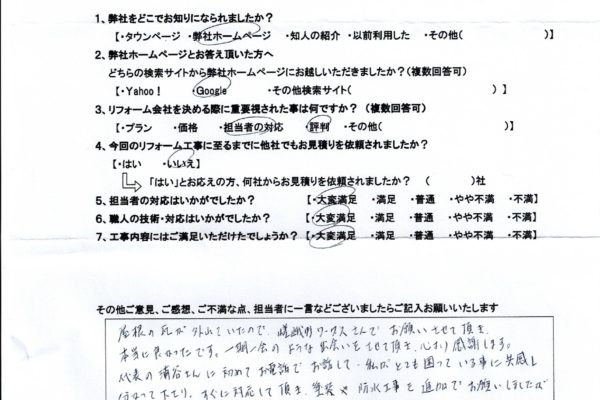 1、弊社をどこでお知りになられましたか？
【・タウンページ ・弊社ホームページ ・知人の紹介 ・以前利用した ・その他( )】
2、弊社ホームページとお答え頂いた方へ
どちらの検索サイトから弊社ホームページにお越しいただきましたか？（複数回答可）
【・Yahoo！ ・Google ・その他検索サイト( )】
3、リフォーム会社を決める際に重要視された事は何ですか？（複数回答可）
【・プラン ・価格 ・担当者の対応 ・評判 ・その他( )】
4、今回のリフォーム工事に至るまでに他社でもお見積りを依頼されましたか？
【・はい ・いいえ】
「はい」とお応えの方、何社からお見積りを依頼されましたか？ ( )社
5、担当者の対応はいかがでしたか？ 【・大変満足 ・満足 ・普通 ・やや不満 ・不満】
6、職人の技術・対応はいかがですか？ 【・大変満足 ・満足 ・普通 ・やや不満 ・不満】
7、工事内容にはご満足いただけたでしょうか？【・大変満足 ・満足 ・普通 ・やや不満 ・不満】
その他ご意見、ご感想、ご不満な点、担当者に一言などございましたらご記入お願いいたします
屋根の瓦が外れていたので、さんでお願いさせて頂き、
本当に良かったです。一期一会のような出会いをさせて頂き、心より感謝します。
代表の さんに初めてお電話でお話して、私がとても困っている事に共感し
すぐに対応して頂き、塗装や防水工事を追加でお願いしましたが